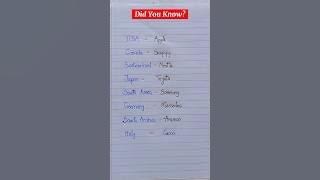 Did You Know?
USA - Apple
Canada - Shopify
Switzerland - Nestle
Japan - Toyota
South Korea - Samsung
Germany - Mercedes
Saudi Arabia - Aramco
Italy - Gucci